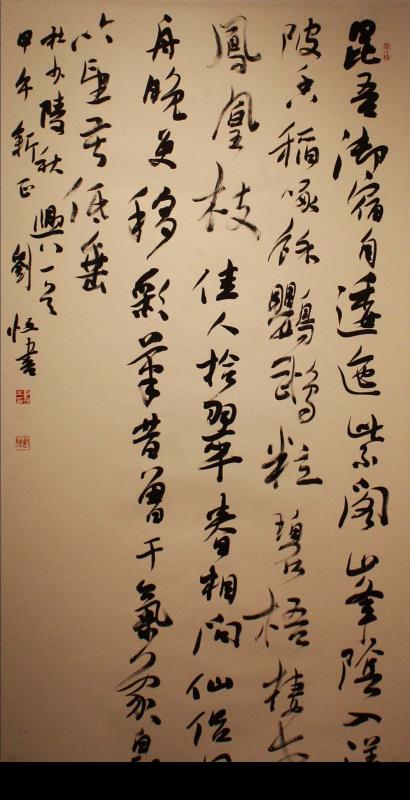 昆吾御宿自逶迤紫閣峯陰入渼
陂香稻啄餘鸚鵡粒碧梧棲老
鳳凰枝佳人拾翠春相問仙侶同
舟晚更移彩筆昔曾干氣象白
吟望苦低垂
杜少陵秋興一首
甲午新正劉恒書